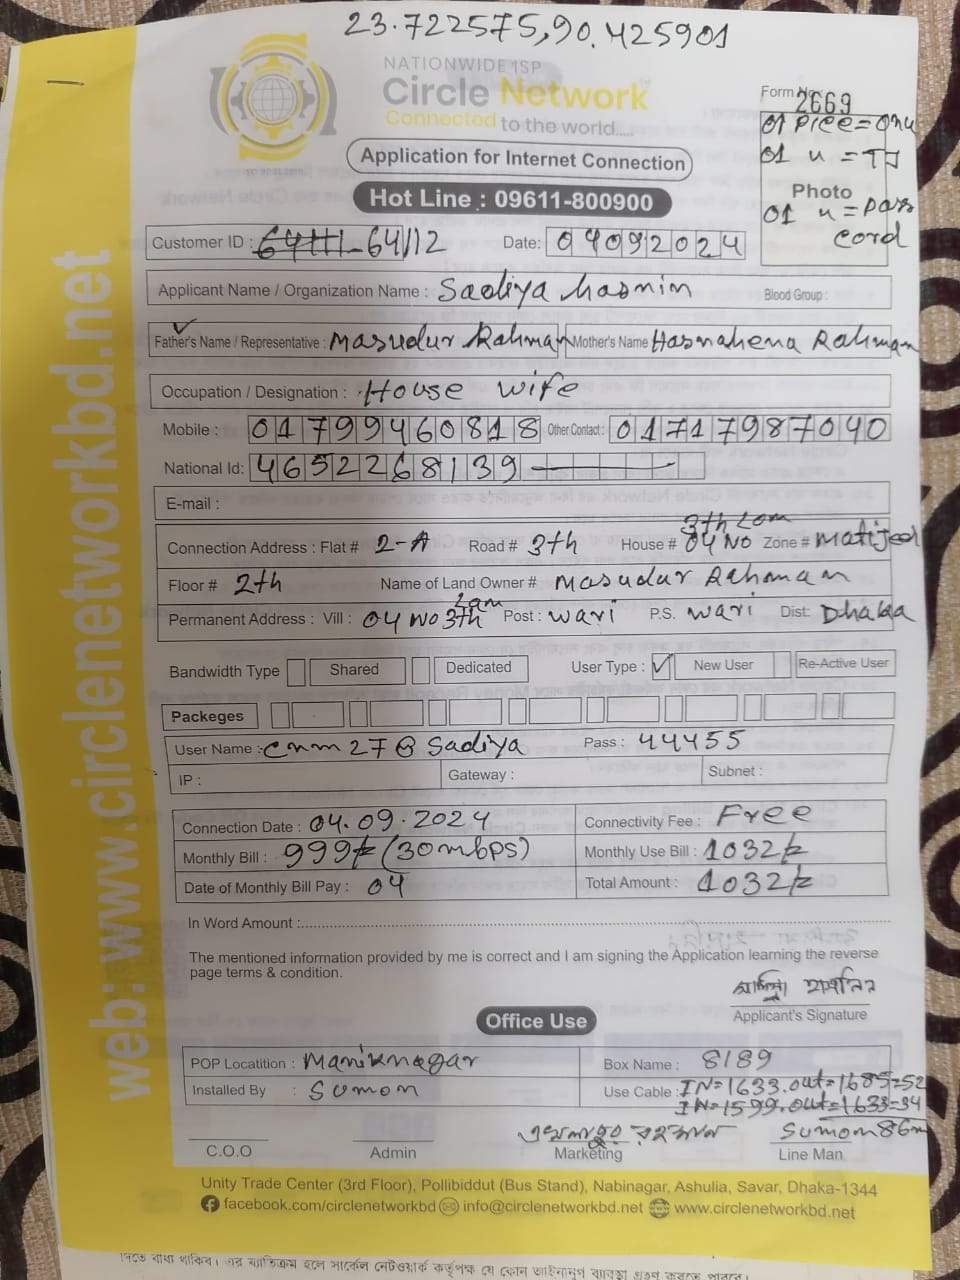 23.722575,90.425901
NATIONWIDE ISP
Circle Network
Connected to the world.....
Form No: 2669
01 Piece = Onu
01 u = TJ
Photo
01 u = Pass
cord
Application for Internet Connection
Hot Line : 09611-800900
Customer ID : 64111-64112 Date: 04092024
Applicant Name / Organization Name : Sadiya hasnin Blood Group :
Father's Name / Representative : Masudur Rahman Mother's Name Hasnahena Rahman
Occupation / Designation : House wife
Mobile : 01799460818 Other Contact : 01717987040
National Id: 4652268139
E-mail :
3th Lam
Connection Address : Flat # 2-A Road # 3th House # 04 NO Zone # Matijeel
Floor # 2th Name of Land Owner # Masudur Rahman
Permanent Address : Vill : 04 NO 3th Lam Post : Wari P.S. Wari Dist: Dhaka
Bandwidth Type Shared Dedicated User Type : ✓ New User Re-Active User
Packeges
User Name :- cnm27@Sadiya Pass : 44455
IP : Gateway : Subnet :
Connection Date : 04.09.2024 Connectivity Fee : Free
Monthly Bill : 999/= (30mbps) Monthly Use Bill : 1032/=
Date of Monthly Bill Pay : 04 Total Amount : 1032/=
In Word Amount :
The mentioned information provided by me is correct and I am signing the Application learning the reverse
page terms & condition.
হাসনিন
Applicant's Signature
Office Use
POP Locatition : Maniknagar Box Name : 8189
Installed By : Sumon Use Cable : IN=1633.out=1685=52
IN=1599.out=1633=34
রহমান Sumon 86m
C.O.O Admin Marketing Line Man
Unity Trade Center (3rd Floor), Pollibiddut (Bus Stand), Nabinagar, Ashulia, Savar, Dhaka-1344
facebook.com/circlenetworkbd info@circlenetworkbd.net www.circlenetworkbd.net
web: www.circlenetworkbd.net
দিতে বাধ্য থাকিব। এর ব্যতিক্রম হলে সার্কেল নেটওয়ার্ক কর্তৃপক্ষ যে কোন আইনানুগ ব্যবস্থা গ্রহণ করতে পারবে।